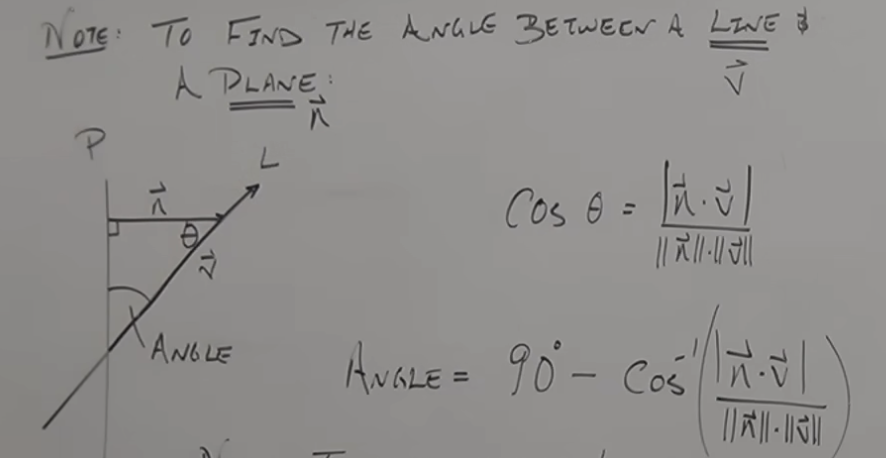 NOTE: TO FIND THE ANGLE BETWEEN A LINE &
v⃗
A PLANE:
n⃗
P
L
n⃗
θ
v⃗
ANGLE
Cos θ = |n⃗·v⃗| / ||n⃗||·||v⃗||
ANGLE = 90° − Cos⁻¹(|n⃗·v⃗| / ||n⃗||·||v⃗||)